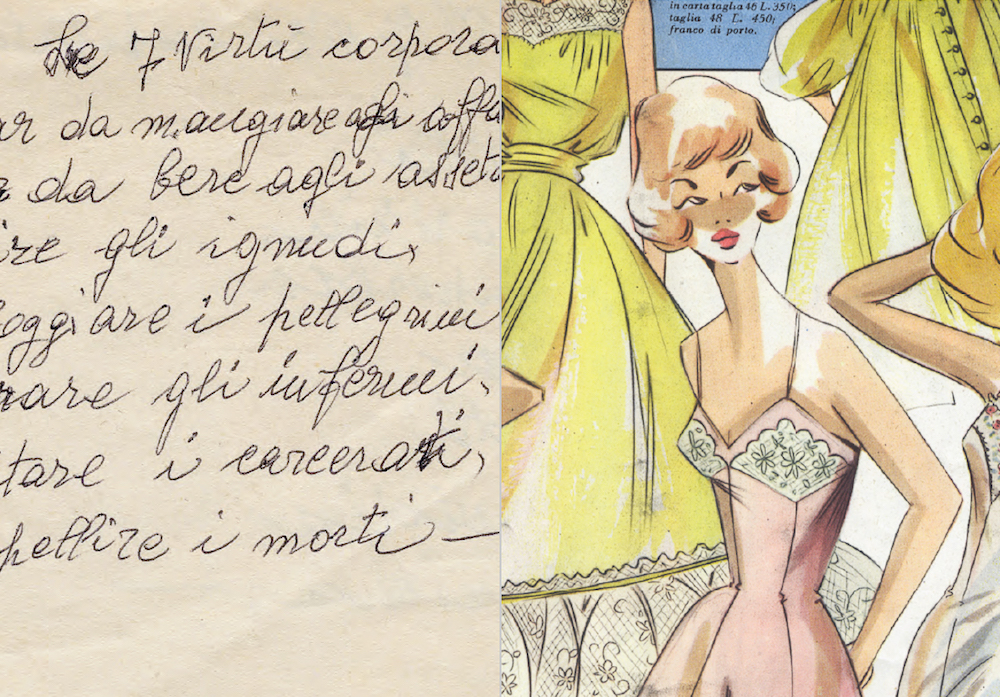 Le 7 Virtù corpora
ar da mangiare agli affa
da bere agli asseta
ire gli ignudi,
oggiare i pellegrini
nare gli infermi,
tare i carcerati,
pellire i morti —
in carta taglia 46 L. 350;
taglia 48 L. 450;
franco di porto.